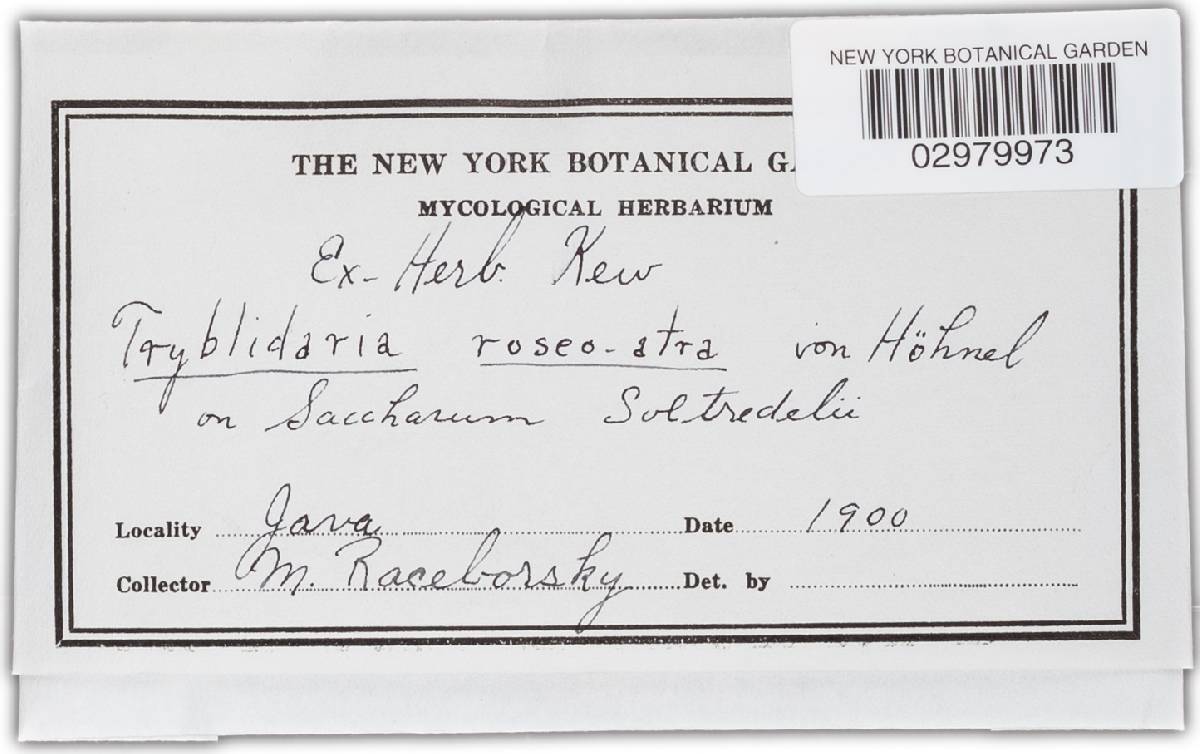 NEW YORK BOTANICAL GARDEN
02979973
THE NEW YORK BOTANICAL GA
MYCOLOGICAL HERBARIUM
Ex-Herb. Kew
Tryblidaria roseo-atra von Höhnel
on Saccharum Soltredelii
Locality Java Date 1900
Collector M. Raceborsky Det. by